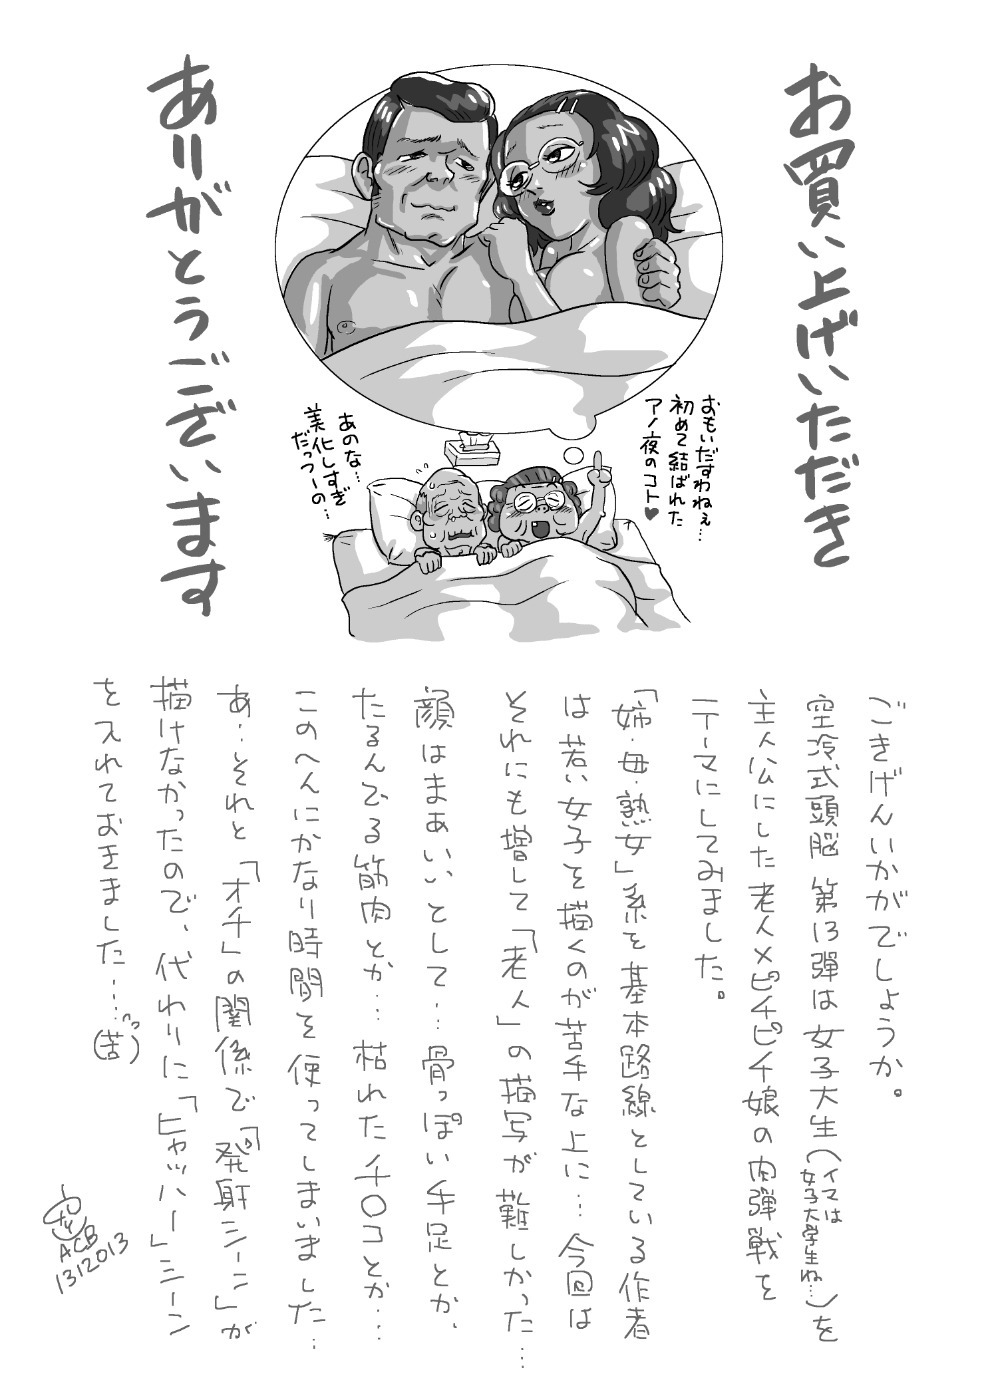 お買い上げいただき
ありがとうございます
おもいだすわねぇ…
初めて結ばれた
アノ夜のコト♥
あのな…
美化しすぎ
だっつーの…
ごきげんいかがでしょうか。
空冷式頭脳 第13弾は女子大生(イマは女子大学生ね…)を
主人公にした老人×ピチピチ娘の肉弾戦を
テーマにしてみました。
「姉・母・熟女」系を基本路線としている作者
は若い女子を描くのが苦手な上に…今回は
それにも増して「老人」の描写が難しかった…
顔はまぁいいとして…骨っぽい手足とか、
たるんでる筋肉とか…枯れたチ〇コとか…
このへんにかなり時間を使ってしまいました…
あ…それと「オチ」の関係で「発射シーン」が
描けなかったので、代わりに「ヒャッハー」シーン
を入れておきました……(苦ペッ)
ACB
1312013